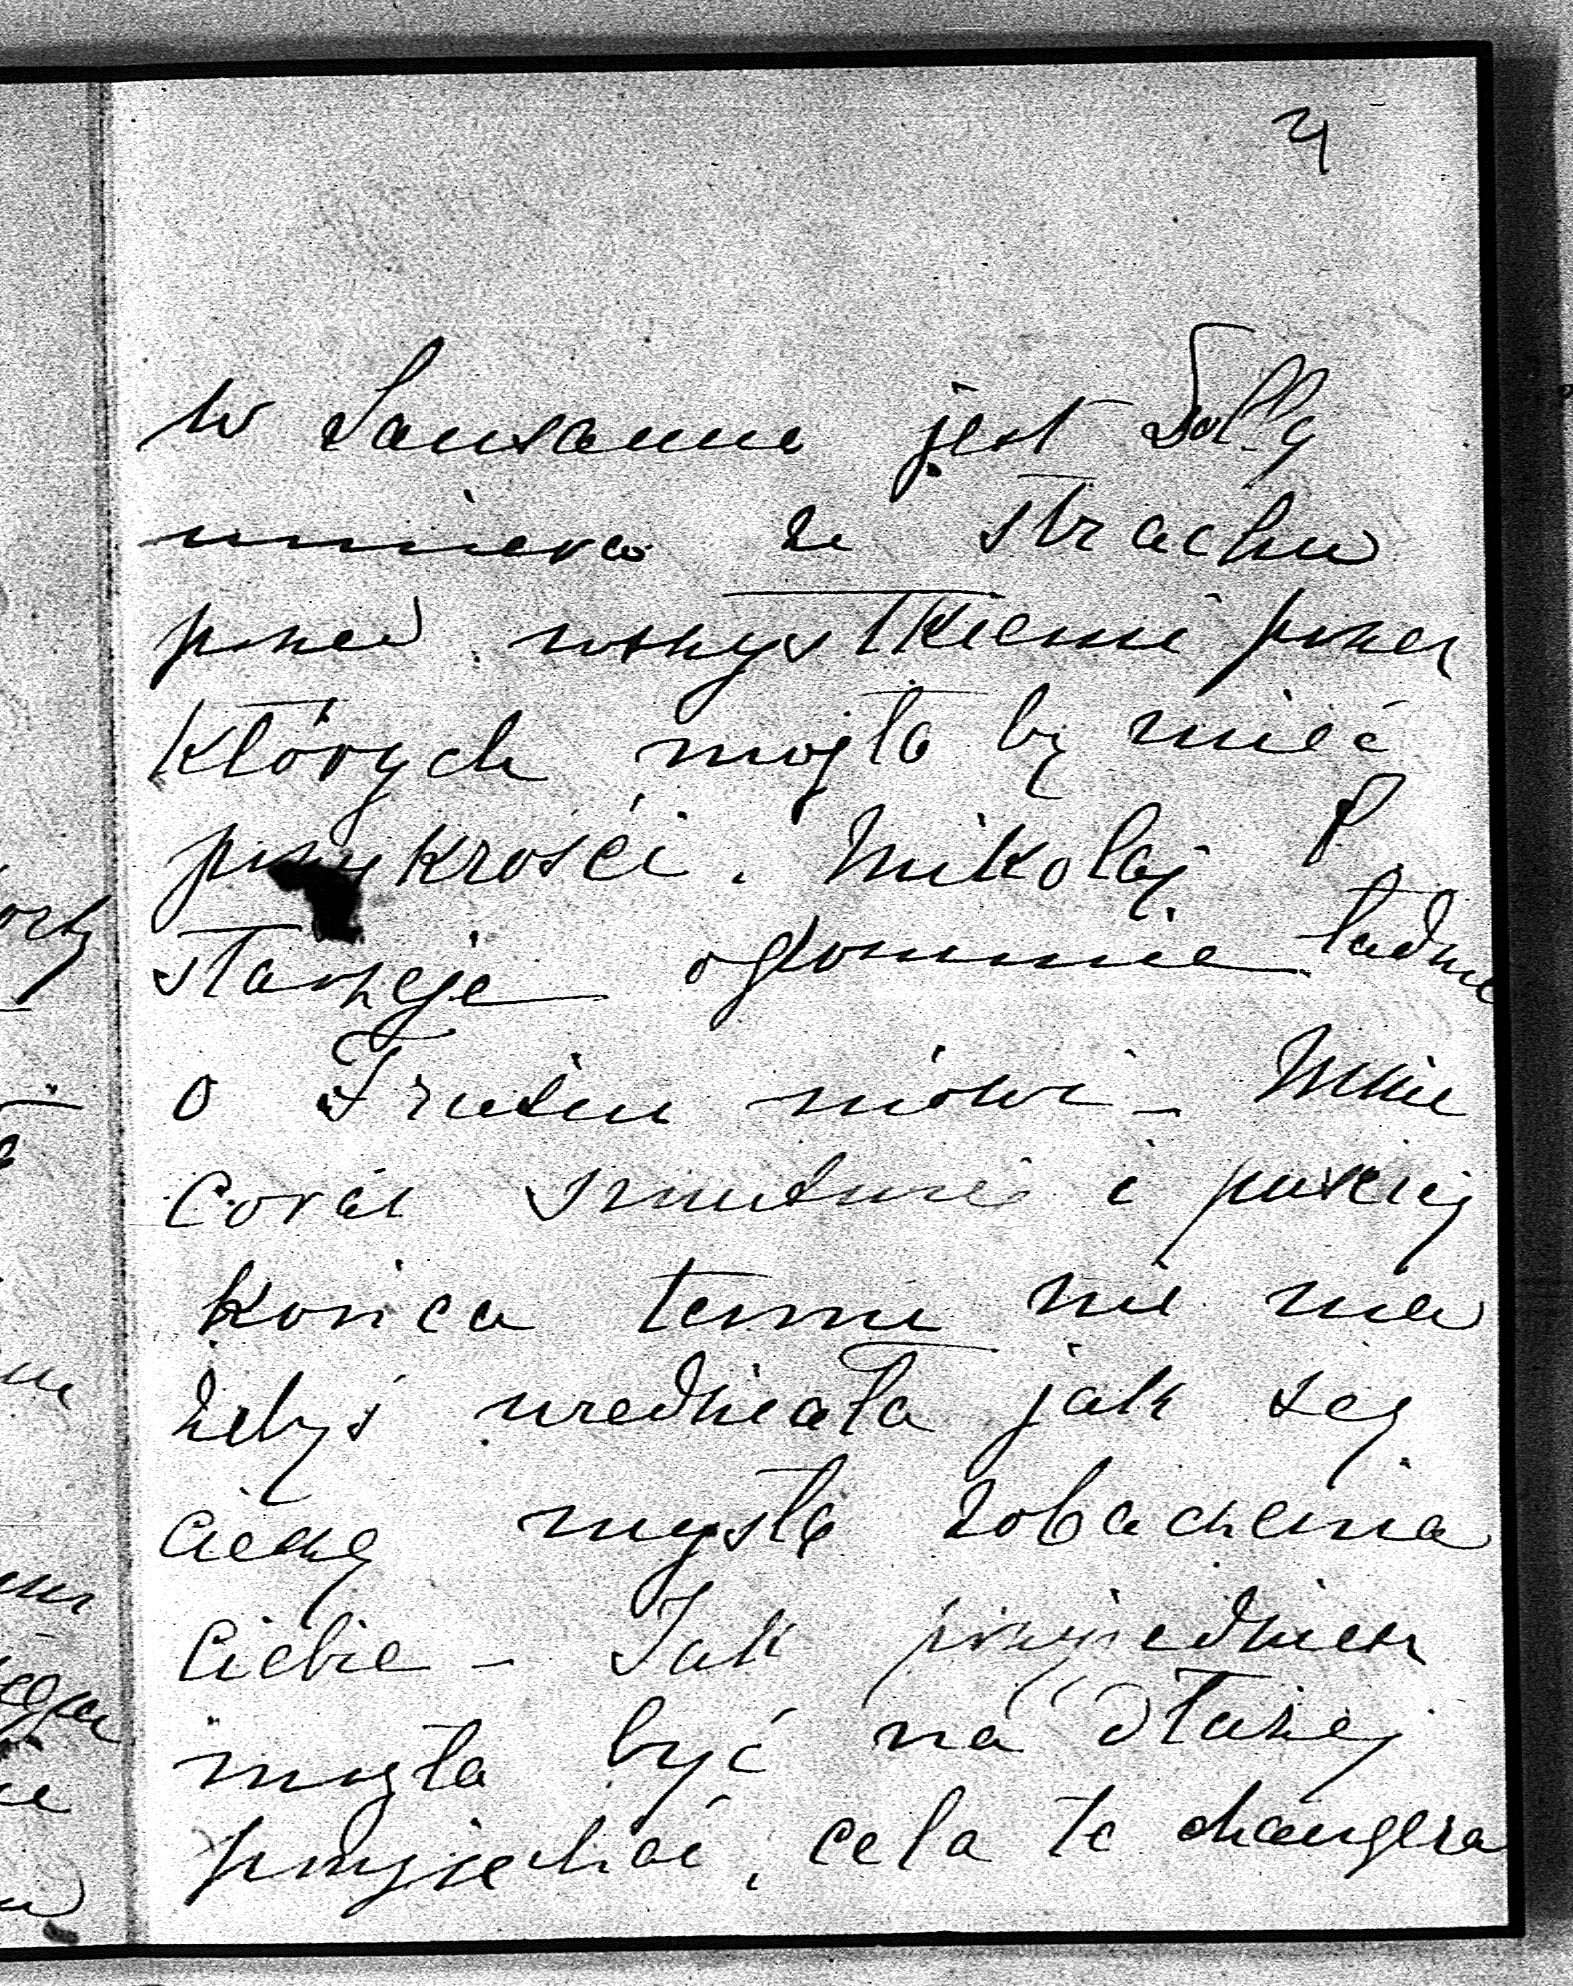 4
w Lausanne jest Dolly
umiera ze strachu
przed wszystkiemi przez
których mogła by mieć
przykrości. Mikołaj P
starzeje ogromnie ładnie
o Fruziu mówi – Mnie
coraz smutnie i puściej
końca temu nie ma
żebyś wiedziała jak się
cieszę myślą zobaczenia
Ciebie – Jak przyjedziesz
mogła być na dłużej
przyjechać, cela te changera